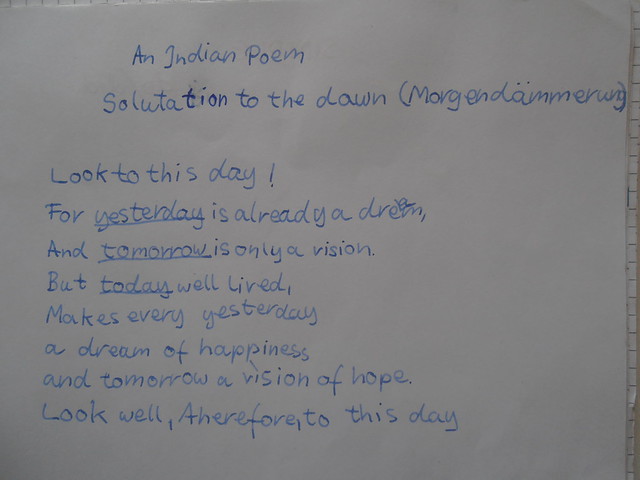 An Indian Poem
Solutation to the dawn (Morgendämmerung)
Look to this day!
For yesterday is already a drem,
And tomorrow is only a vision.
But today well lived,
Makes every yesterday
a dream of happiness
and tomorrow a vision of hope.
Look well, Aherefore, to this day